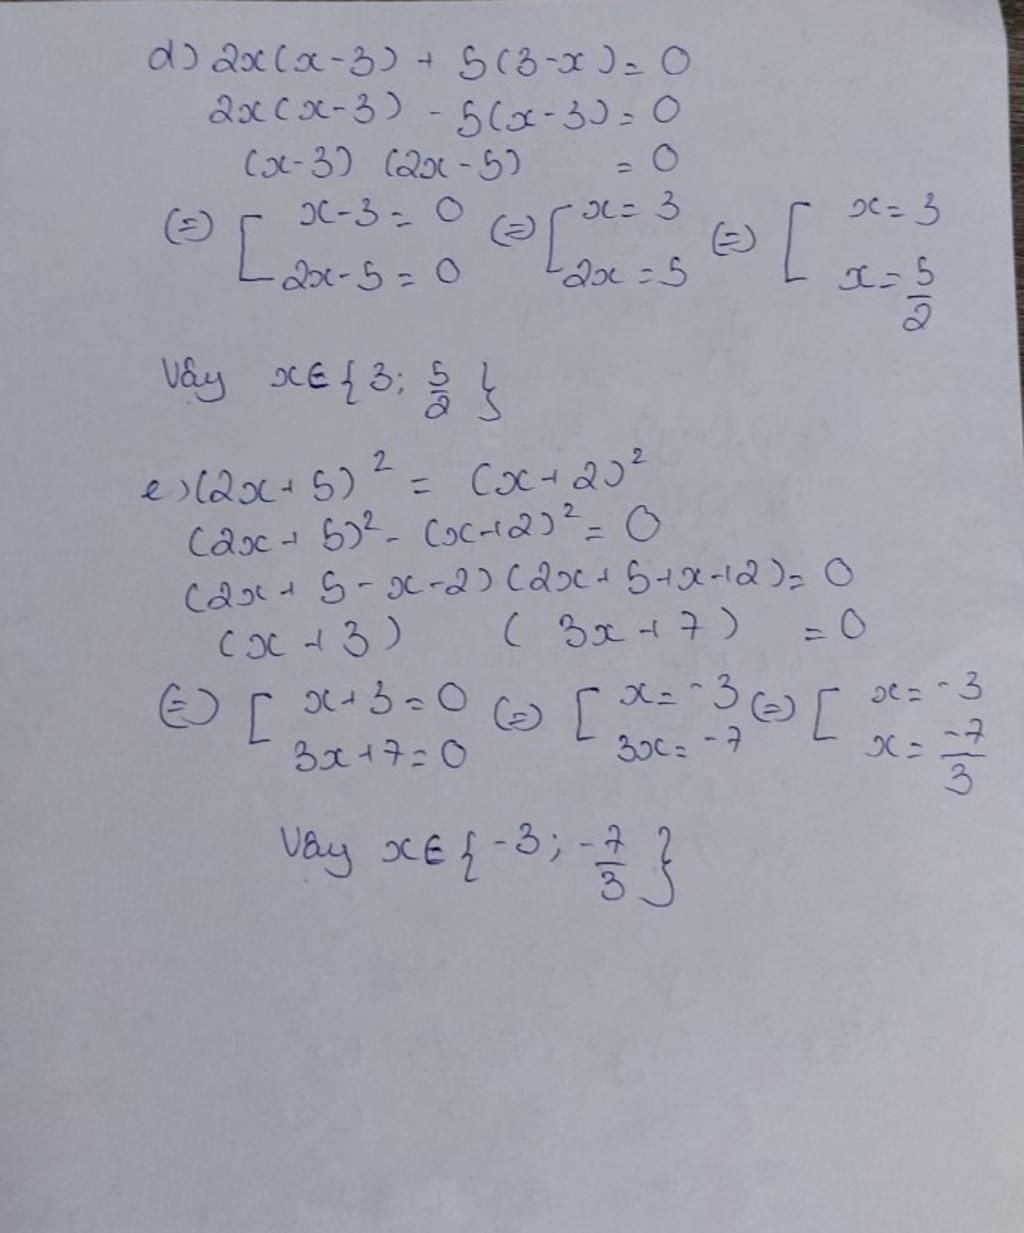 d) 2x(x-3) + 5(3-x) = 0
2x(x-3) - 5(x-3) = 0
(x-3) (2x-5) = 0
(=) [ x-3 = 0 (=) [ x = 3 (=) [ x = 3
2x-5 = 0 2x = 5 x = 5/2
Vây x∈{3; 5/2}
e) (2x+5)² = (x+2)²
(2x+5)² - (x+2)² = 0
(2x+5-x-2)(2x+5+x+2) = 0
(x+3) (3x+7) = 0
(=) [ x+3 = 0 (=) [ x = -3 (=) [ x = -3
3x+7 = 0 3x = -7 x = -7/3
Vây x∈{-3; -7/3}